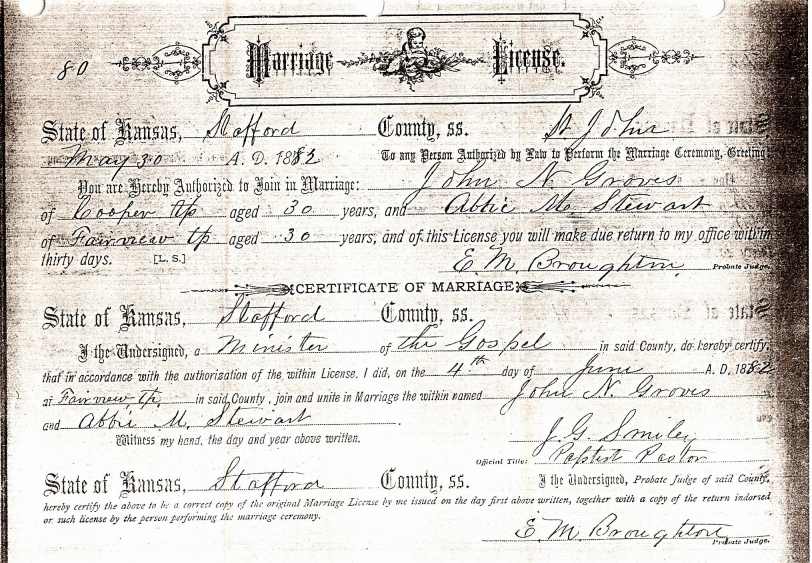 80
Marriage License.
State of Kansas, Stafford County, ss. St John
May 30 A. D. 1882 To any Person Authorized by Law to Perform the Marriage Ceremony, Greeting:
You are Hereby Authorized to Join in Marriage: John N. Groves
of Cooper tp aged 30 years, and Abbie M. Stewart
of Fairview tp aged 30 years, and of this License you will make due return to my office within
thirty days. [L. S.] E. M. Broughton, Probate Judge.
CERTIFICATE OF MARRIAGE
State of Kansas, Stafford County, ss.
I the Undersigned, a Minister of the Gospel in said County, do hereby certify,
that in accordance with the authorization of the within License. I did, on the 4th day of June A. D. 1882
at Fairview tp. in said County, join and unite in Marriage the within named John N. Groves
and Abbie M. Stewart.
Witness my hand, the day and year above written. J. G. Smiley
Official Title: Baptist Pastor
State of Kansas, Stafford County, ss. I the Undersigned, Probate Judge of said County,
hereby certify the above to be a correct copy of the original Marriage License by me issued on the day first above written, together with a copy of the return indorsed
or such license by the person performing the marriage ceremony.
E. M. Broughton Probate Judge.